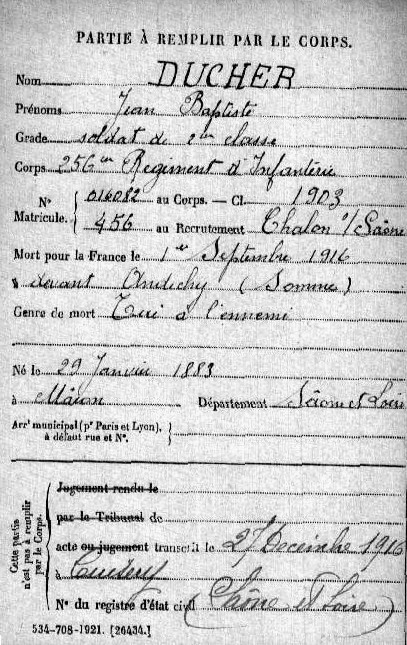 PARTIE À REMPLIR PAR LE CORPS.
Nom DUCHER
Prénoms Jean Baptiste
Grade soldat de 2me classe
Corps 256me Regiment d'Infanterie
N° Matricule. { 016082 au Corps. — Cl. 1903
456 au Recrutement Chalon s/ Saône
Mort pour la France le 1er Septembre 1916
à devant Andechy (Somme)
Genre de mort Tué à l'ennemi
Né le 29 Janvier 1883
à Mâcon Département Saône et Loire
Arrt municipal (pr Paris et Lyon), à défaut rue et N°. }
Cette partie n'est pas à remplir par le Corps.
Jugement rendu le
par le Tribunal de
acte ou jugement transcrit le 27 Decembre 1916
à
N° du registre d'état civil (Saône et Loire)
534-708-1921. [26434.]